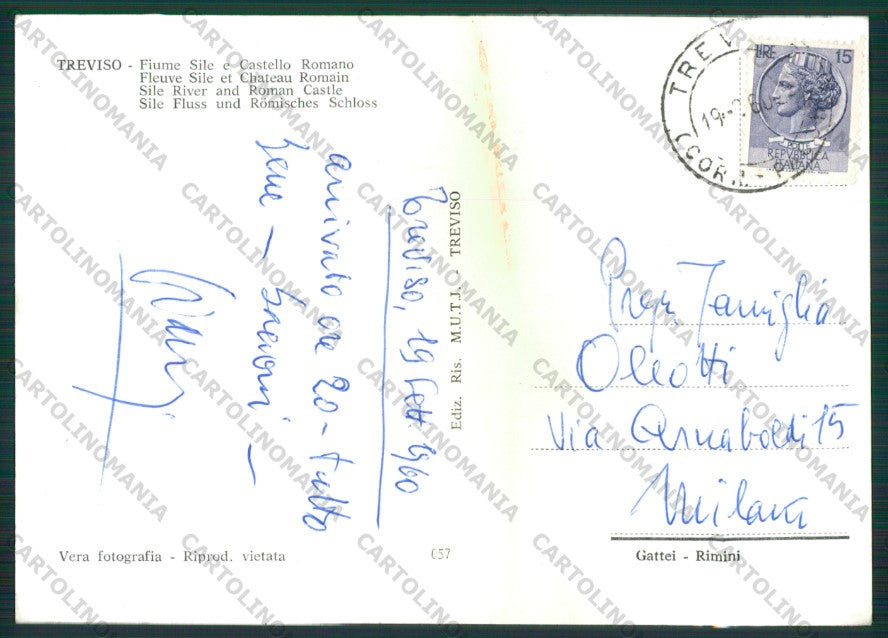 TREVISO - Fiume Sile e Castello Romano
Fleuve Sile et Chateau Romain
Sile River and Roman Castle
Sile Fluss und Römisches Schloss
LIRE 15
REPVBBLICA
ITALIANA
TREV
19
60
Treviso, 19 Sett. 1960
arrivato ore 20 - tutto
bene -
Ediz. Ris. M.U.T.J. - TREVISO
Famiglia
Oleotti
Via Arnaboldi 15
Milano
Vera fotografia - Riprod. vietata
057
Gattei - Rimini
CARTOLINOMANIA